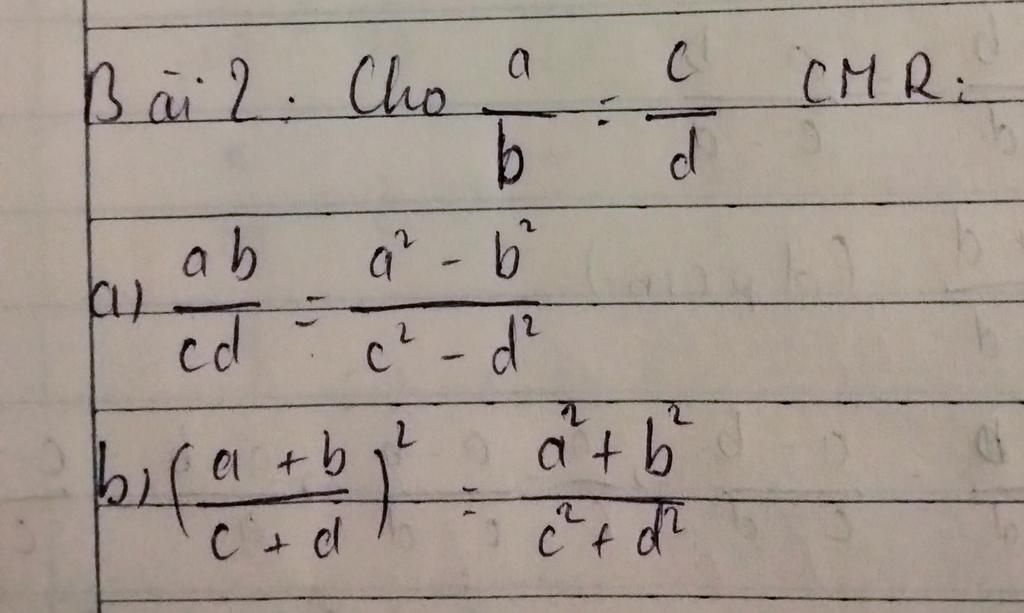 Bài 2: Cho a/b = c/d CMR:
a) ab/cd = a² - b²/c² - d²
b) (a + b/c + d)² = a² + b²/c² + d²